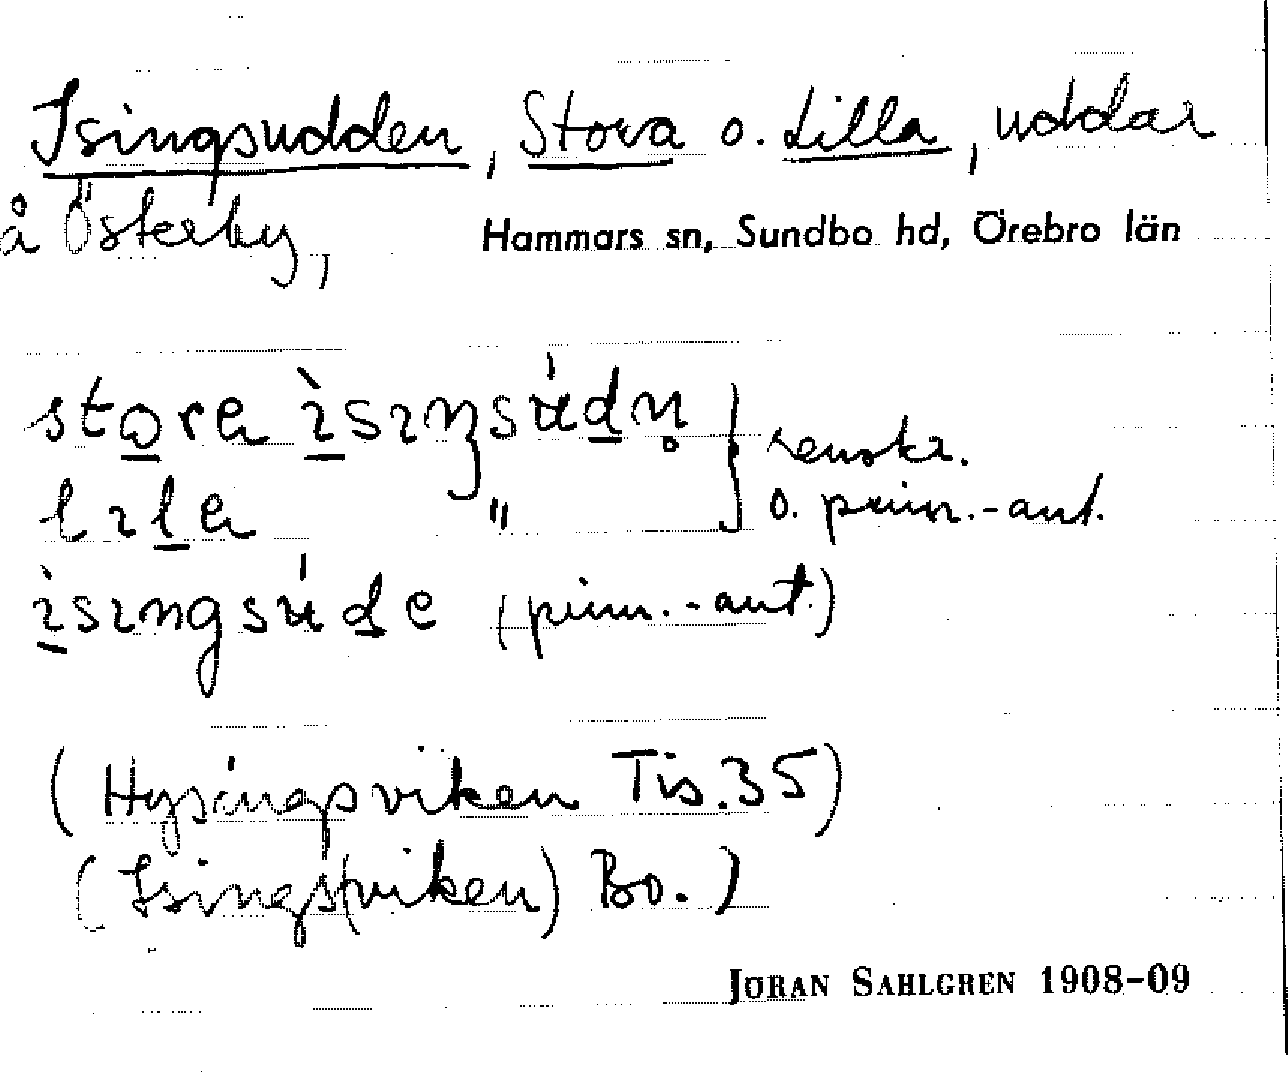 Isingsudden, Stora o. Lilla, uddar
å Österby,
Hammars sn, Sundbo hd, Örebro län
stora ìsıŋsúdn̥ } renskr.
lıla " o. prim.-ant.
ìsıngsúde (prim.-ant.)
(Hysingsviken Tis. 35)
(Isings(viken) Bo.)
JÖRAN SAHLGREN 1908-09